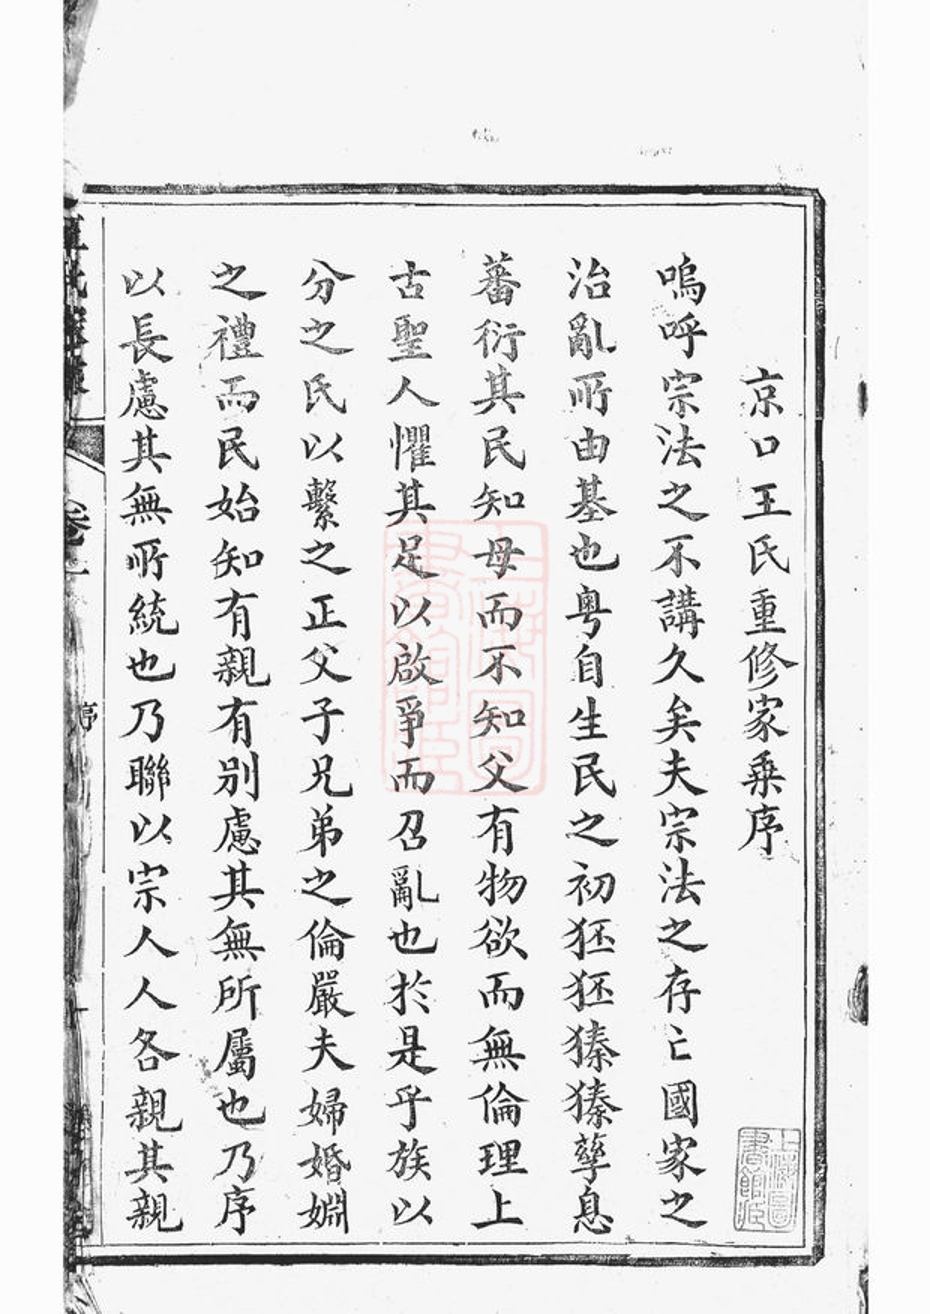 京口王氏重修家乗序
嗚呼宗法之不講久矣夫宗法之存亡國家之
治亂所由基也粤自生民之初狉狉獉獉孳息
蕃衍其民知母而不知父有物欲而無倫理上
古聖人懼其足以啟爭而召亂也於是乎族以
分之氏以繫之正父子兄弟之倫嚴夫婦婚婣
之禮而民始知有親有别慮其無所屬也乃序
以長慮其無所統也乃聯以宗人人各親其親
卷一
序
上海圖書館藏